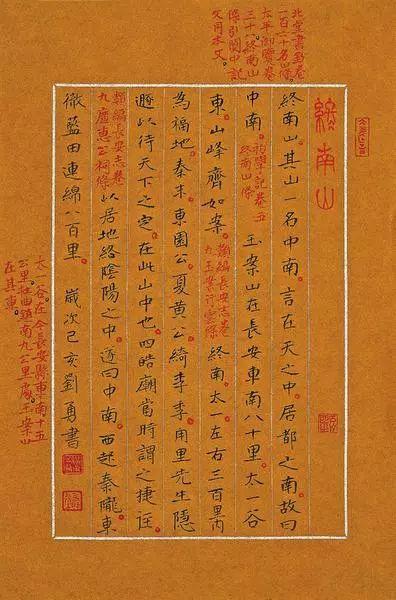 終南山
北堂書鈔卷
一百六十名山條
太平御覽卷
三十八終南山
條引關中記
文同本文。
終南山。其山一名中南。言在天之中。居都之南。故曰
中南。初學記卷五
終南山條
玉案山在長安東南八十里。太一谷
東。山峰齊如案。類編長安志卷
終南太一左右三百里內
為福地。秦末東園公夏黃公綺李季用里先生隱
避以待天下之定。在此山中也。四皓廟當時謂之捷徑。
類編長安志卷
以居地絡陰陽之中。逐曰中南。西起秦隴。東
徹藍田。連綿八百里。 歲次己亥劉勇書
太一谷。在今長安縣東南十五
公里杜曲鎮南九公里處。玉案山
在其東。